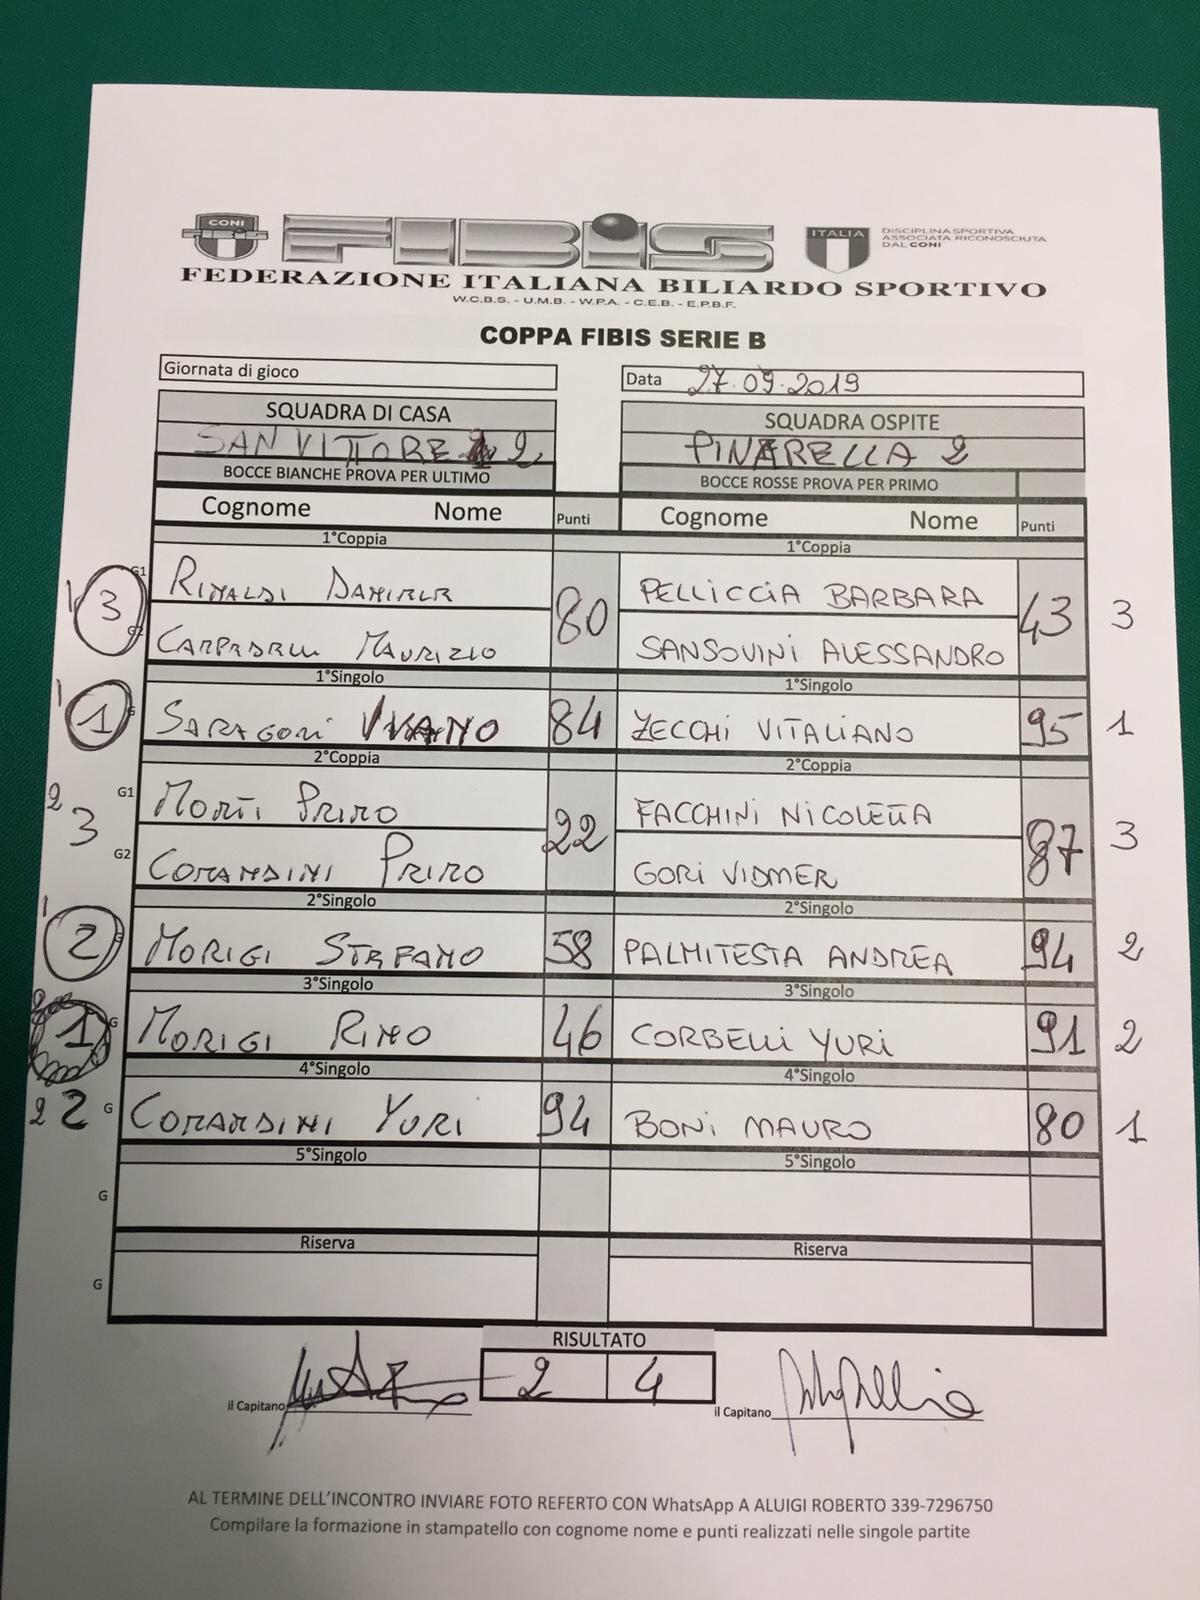 CONI
FIBIS
ITALIA
DISCIPLINA SPORTIVA
ASSOCIATA RICONOSCIUTA
DAL CONI
FEDERAZIONE ITALIANA BILIARDO SPORTIVO
W.C.B.S. - U.M.B. - W.P.A. - C.E.B. - E.P.B.F.
COPPA FIBIS SERIE B
Giornata di gioco
Data 27.09.2019
SQUADRA DI CASA SQUADRA OSPITE
SAN VITTORE 2 PINARELLA 2
BOCCE BIANCHE PROVA PER ULTIMO BOCCE ROSSE PROVA PER PRIMO
Cognome Nome Punti Cognome Nome Punti
1°Coppia 1°Coppia
1 3 G1 RINALDI DANIELE 80 PELLICCIA BARBARA 43 3
G2 MAURIZIO SANSOVINI ALESSANDRO
1°Singolo 1°Singolo
1 1 G SARAGONI IVANO 84 ZECCHI VITALIANO 95 1
2°Coppia 2°Coppia
2 3 G1 MONTI PRIMO 22 FACCHINI NICOLETTA 87 3
G2 COMANDINI PRIMO GORI VIDMER
2°Singolo 2°Singolo
1 2 G MORIGI STEFANO 58 PALMITESTA ANDREA 94 2
3°Singolo 3°Singolo
1 G MORIGI RINO 46 CORBELLI YURI 91 2
4°Singolo 4°Singolo
2 2 G COMANDINI YURI 94 BONI MAURO 80 1
5°Singolo 5°Singolo
G
Riserva Riserva
G
RISULTATO
2 4
il Capitano il Capitano
AL TERMINE DELL'INCONTRO INVIARE FOTO REFERTO CON WhatsApp A ALUIGI ROBERTO 339-7296750
Compilare la formazione in stampatello con cognome nome e punti realizzati nelle singole partite